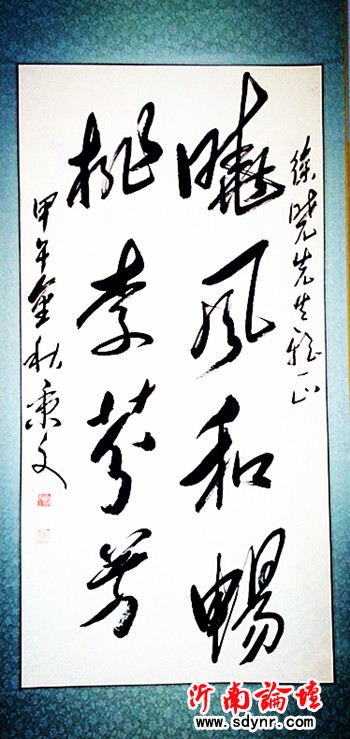 徐晓先生雅正
曉風和暢
桃李芬芳
甲午金秋秉文
沂南論壇
www.sdynr.com